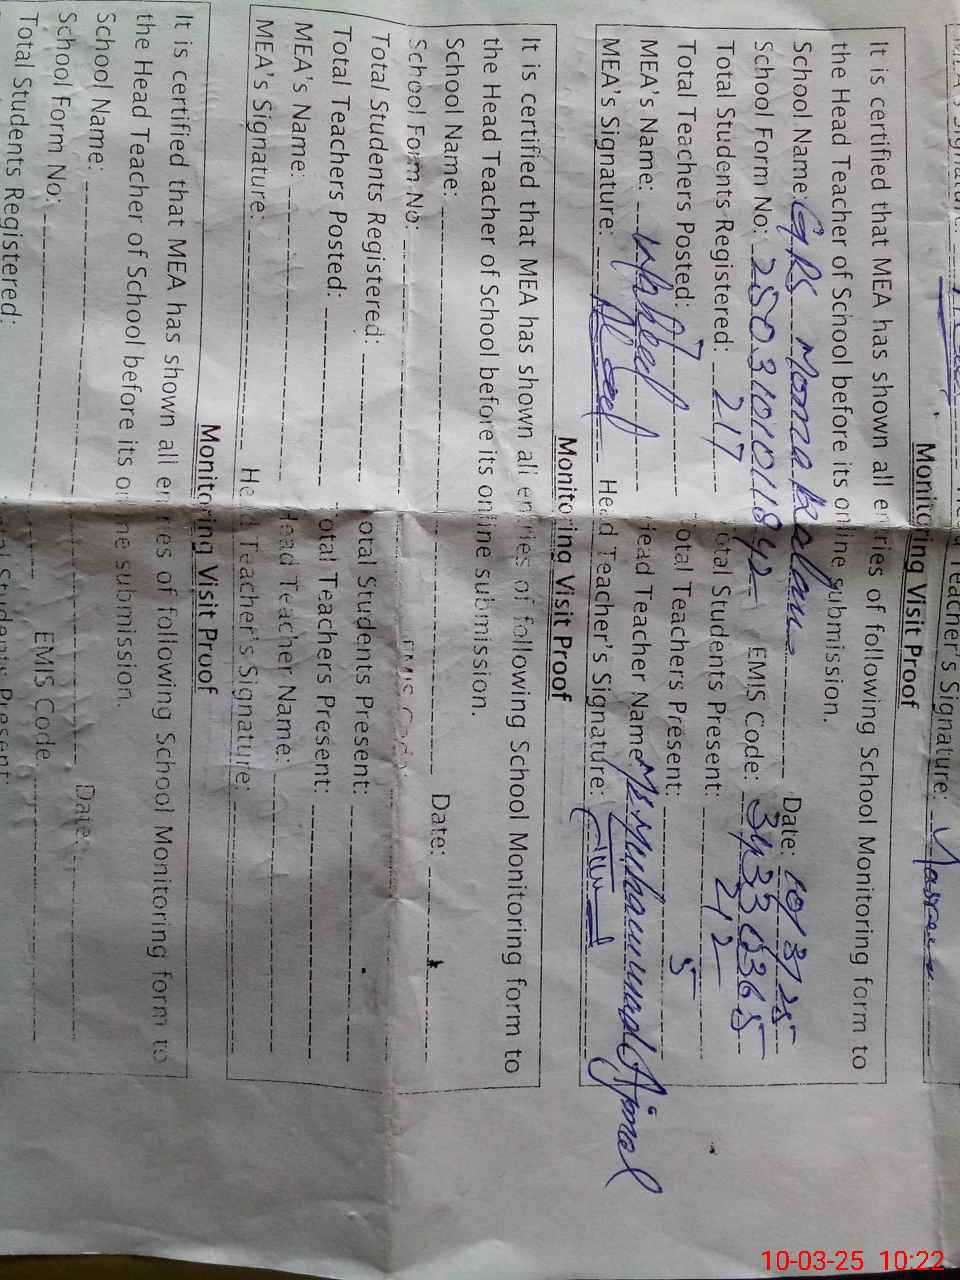 MEA's Signature: Head Teacher's Signature:
Monitoring Visit Proof
It is certified that MEA has shown all entries of following School Monitoring form to
the Head Teacher of School before its online submission.
School Name: GPS Moma Kalan Date: 10/3/25
School Form No: EMIS Code:
Total Students Registered: 217 Total Students Present: 42
Total Teachers Posted: 7 Total Teachers Present: 5
MEA's Name: Head Teacher Name: Muhammad Ajmal
MEA's Signature: Head Teacher's Signature:
Monitoring Visit Proof
It is certified that MEA has shown all entries of following School Monitoring form to
the Head Teacher of School before its online submission.
School Name: Date:
School Form No: EMIS Code
Total Students Registered: Total Students Present:
Total Teachers Posted: Total Teachers Present:
MEA's Name: Head Teacher Name:
MEA's Signature: Head Teacher's Signature:
Monitoring Visit Proof
It is certified that MEA has shown all entries of following School Monitoring form to
the Head Teacher of School before its online submission.
School Name: Date:
School Form No: EMIS Code
Total Students Registered: Total Students Present:
10-03-25 10:22